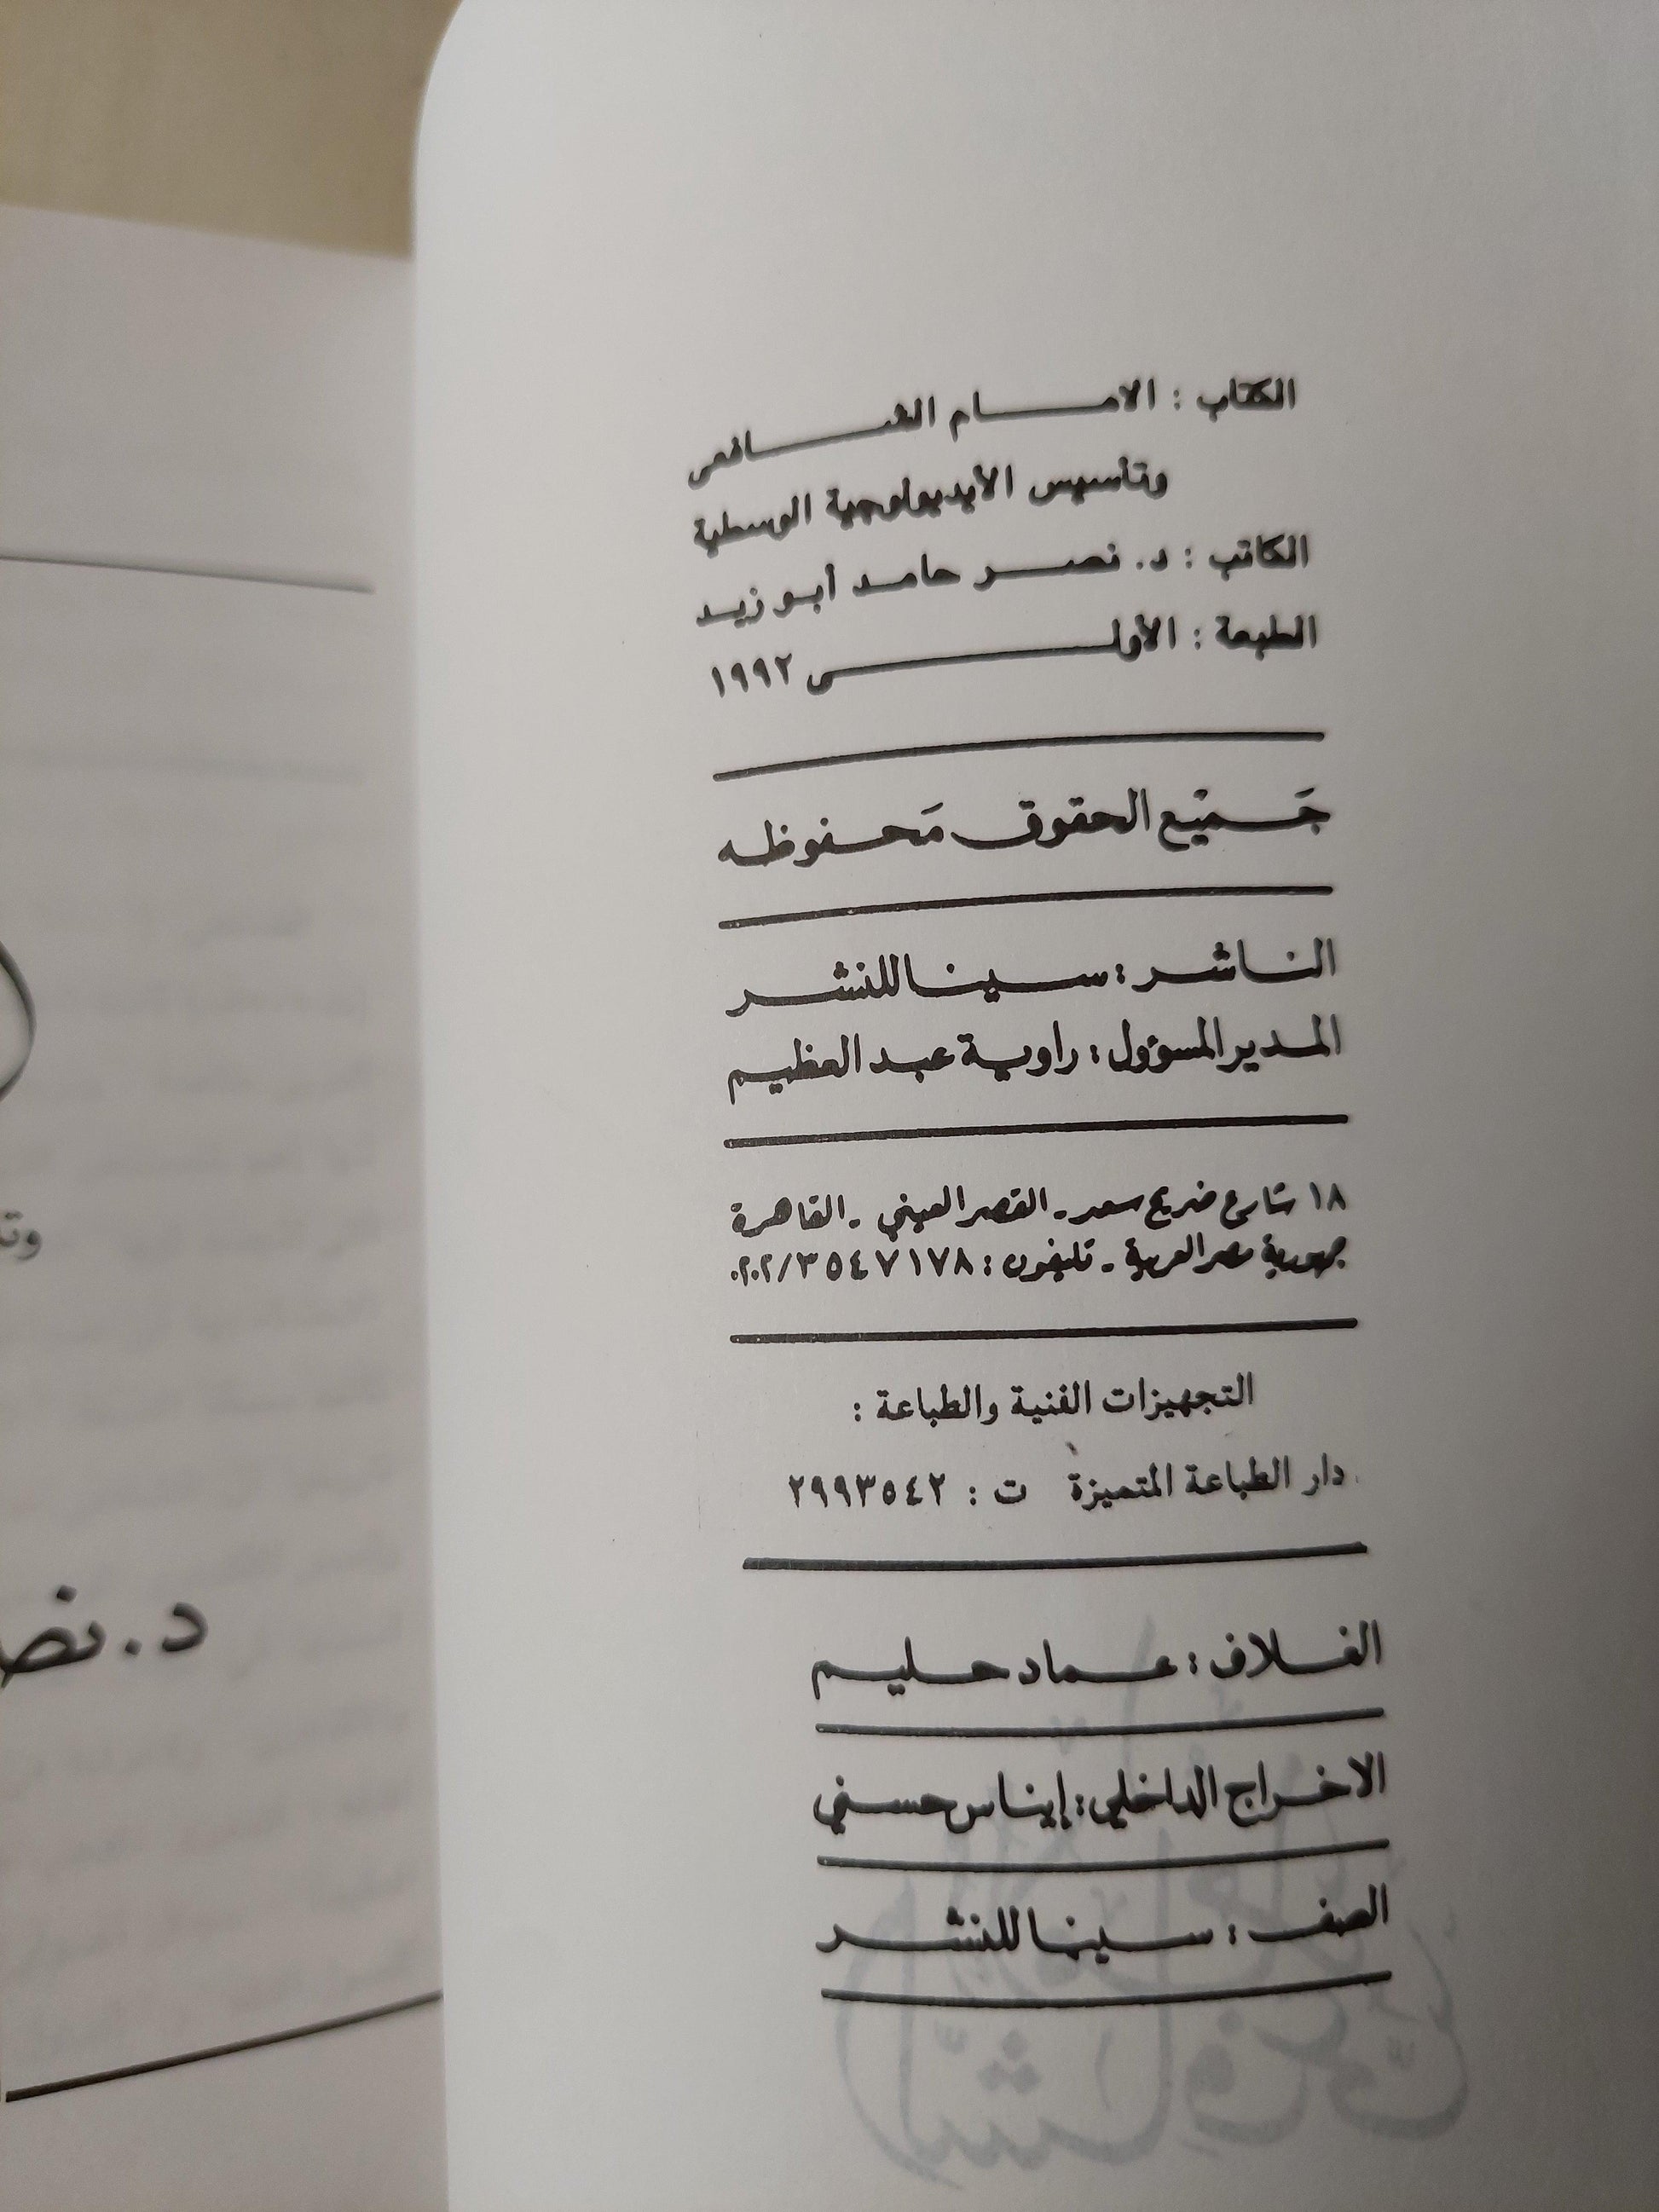 الكتاب : الامام الشافعى
وتأسيس الأيديولوجية الوسطية
الكاتب : د. نصر حامد أبو زيد
الطبعة : الأولى ١٩٩٢
جَميْع الحقوق مَحفوظه
الناشر : سينا للنشر
المدير المسؤول : راوية عبد العظيم
١٨ شارع ضريح سعد - القصر العيني - القاهرة
جمهورية مصر العربية - تليفون : ٠٢٠٢/٣٥٤٧١٧٨
التجهيزات الفنية والطباعة :
دار الطباعة المتميزة ت : ٢٩٩٣٥٤٢
الغلاف : عماد حليم
الاخراج الداخلي : إيناس حسني
الصف : سينا للنشر
د. نصـ